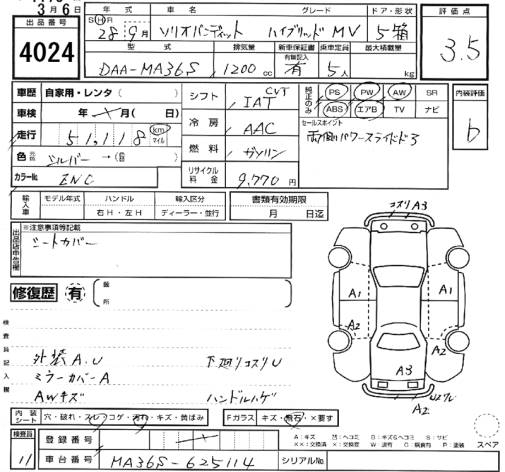 3月6日
出品番号
4024
年式 車名 グレード ドア・形状 評価点
SHR 28年9月 ソリオバンディット ハイブリッドMV 5箱 3.5
型式 排気量 新車保証書 有無記入 乗車定員 最大積載量
DAA-MA36S 1200cc 有 5人 kg
車歴 自家用・レンタ( )
車検 年 月( 日)
走行 51,118 km マイル
色 元色 シルバー→(色替)
カラーNo. ZNC
シフト CVT IAT
冷房 AAC
燃料 ガソリン
リサイクル料金 9,770円
純正のみ PS PW AW SR
ABS エアB TV ナビ
セールスポイント
両側パワースライドドア
内装評価
b
輸入車 モデル年式 ハンドル 輸入区分
年 右H・左H ディーラー・並行
書類有効期限
月 日迄
出品店申告欄
※注意事項等記載
シートカバー
修復歴 有 箇所
検査員記入欄
外装A.U
ミラーカバーA
AWキズ
下廻りコスリU
ハンドルハゲ
コスリA3
A1 A1
A2 A2
A3
A2
内装シート 穴・破れ・スレ・コゲ・汚れ・キズ・黄ばみ
Fガラス キズ・飛石・×要す
検査員 11
登録番号
車台番号 MA36S-625114
シリアルNo.
A:キズ B:キズ&ヘコミ S:サビ
XX:交換済 X:交換要 W:波有 C:腐食有 P:塗装
スペア